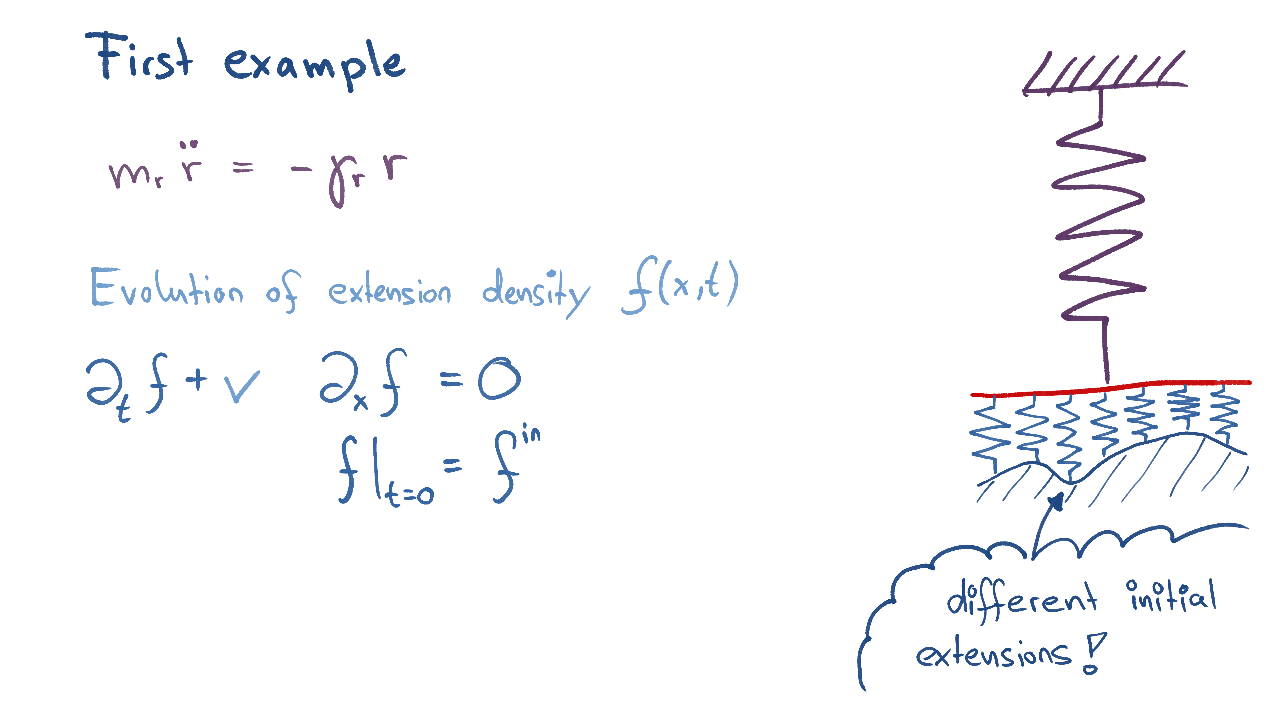 First example
mᵣ r̈ = - γᵣ r
Evolution of extension density f(x,t)
∂ₜ f + v ∂ₓ f = 0
f|ₜ₌₀ = fⁱⁿ
different initial
extensions!